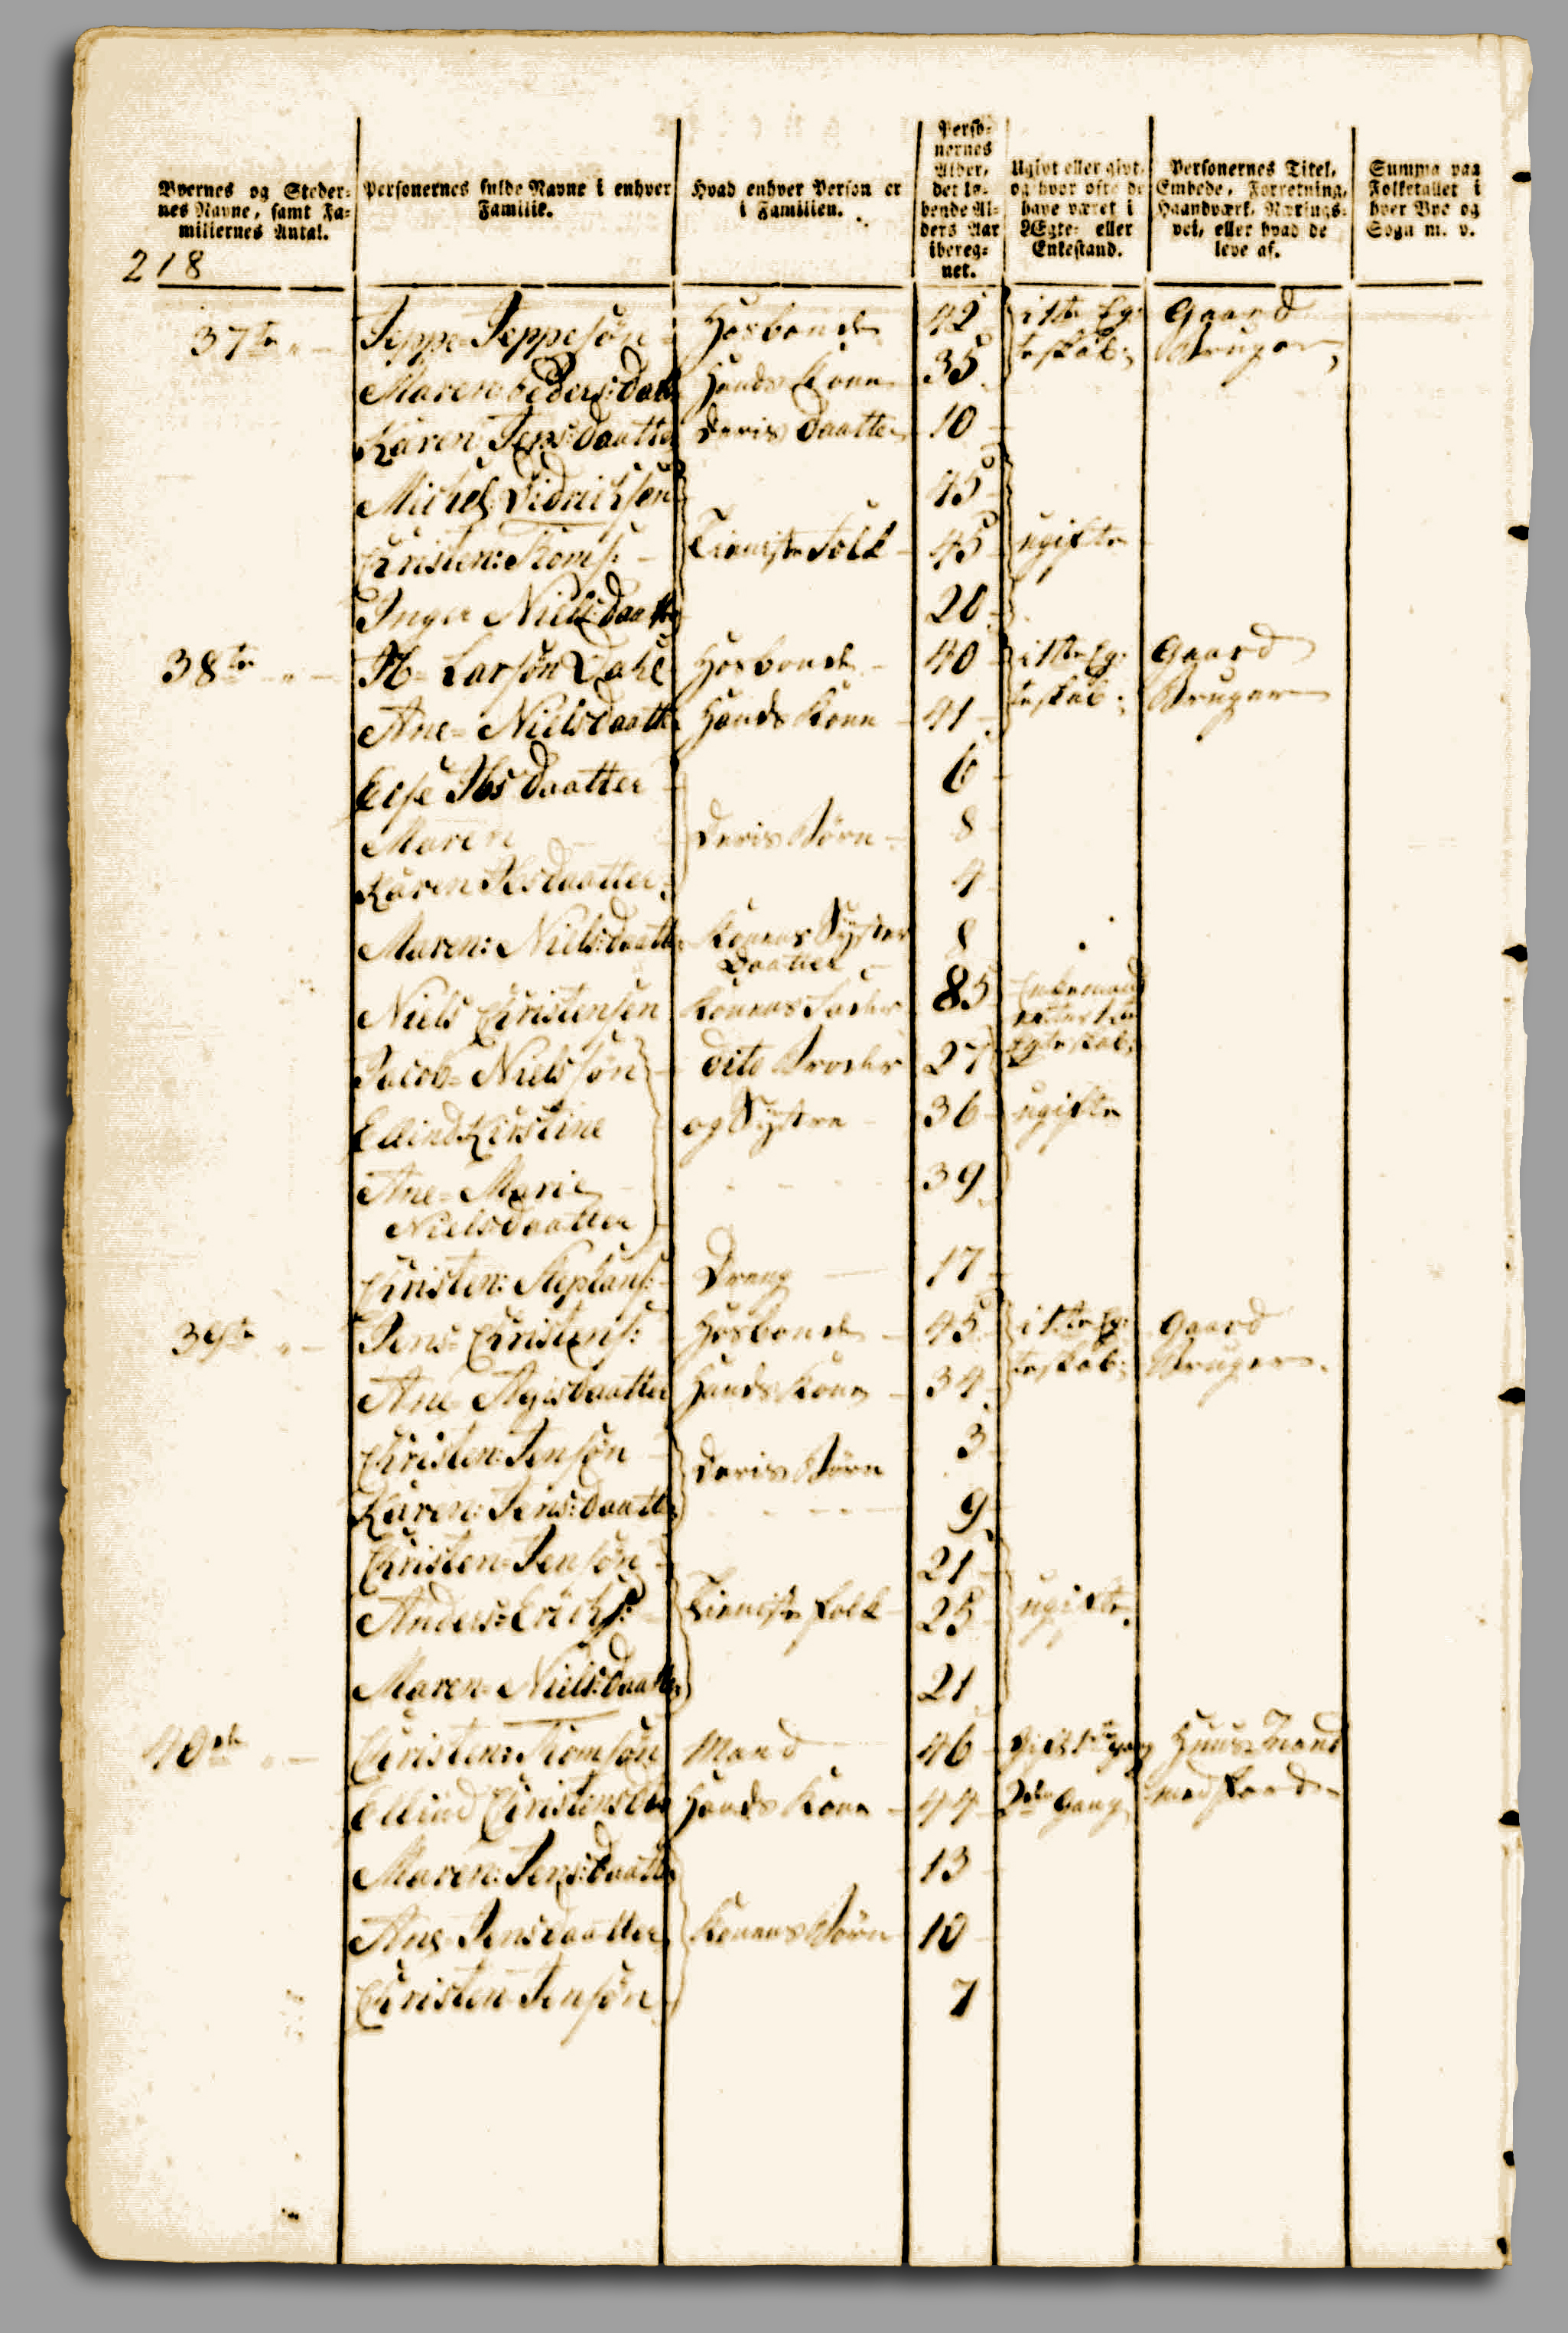 Byernes og Steder-
nes Navne, samt Fa-
miliernes Antal.
Personernes fulde Navne i enhver
Familie.
Hvad enhver Person er
i Familien.
Perso-
nernes
Alder,
det lø-
bende Al-
ders Aar
ibereg-
net.
Ugivt eller givt,
og hvor ofte de
have været i
Ægte- eller
Enkestand.
Personernes Titel,
Embede, Forretning,
Haandværk, Nærings-
vei, eller hvad de
leve af.
Summa paa
Folketallet i
hver Bye og
Sogn m. v.
218
37te Jeppe Jeppesøn Hosbonde 42 i 1te Eg- Gaard
teskab Bruger
Maren Peders:datt Hands Kone 35
Karen Jens:daatter Deris Daatter 10
Michel Didrichsen 45
Christen: Thoms: Tieniste Folk 45 ugifte
Inger Niels:daatt 20
38te Ib Larsøn Dahl Hosbonde 40 i 1te Eg- Gaard
teskab Bruger
Ane Nielsdaatter Hands Kone 41
Else Ibsdaatter 6
Maren Deris Børn 8
Karen Ibsdaatter 4
Maren: Niels:daatter Konens Syster 8
Daatter
Niels Christensen Konens Fader 85 Enkemand
efter 1te
Egteskab
Jacob Nielssøn dito Broder 27
Ellind Kirstine og Systre 36 ugifte
Ane Marie 39
Nielsdaatter
Christen: Stephans: Dreng 17
39te Jens Christens: Hosbonde 45 i 1te Eg- Gaard
teskab Bruger
Ane Daatter Hands Kone 34
Christen: Jensøn Deris Børn 3
Karen: Jens:daatter 9
Christen Jensøn 21
Anders Erichs: Tieniste folk 25 ugifte
Maren Niels:daatter 21
40de Christen: Thomsøn Mand 46 Gift 1te gang Huus Mand
Ellind Christensdtr Hands Kone 44 2den Gang med Jord
Maren: Jens:daatter 13
Ane Jensdaatter Konens Børn 10
Christen Jensøn 7